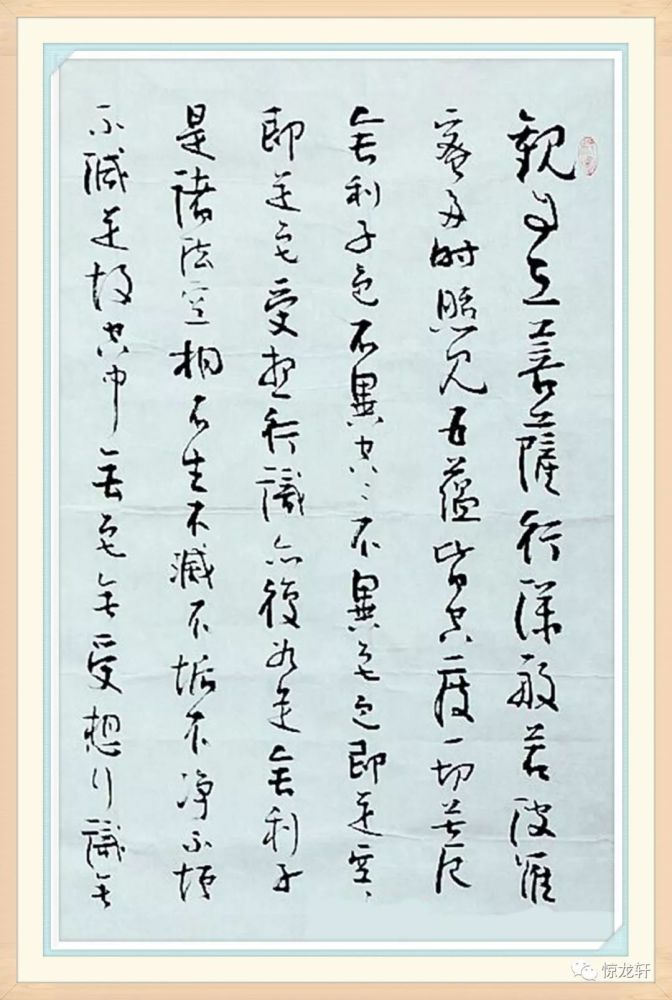 觀自在菩薩行深般若波羅
蜜多時照見五蘊皆空度一切苦厄
舍利子色不異空空不異色色即是空空
即是色受想行識亦復如是舍利子
是諸法空相不生不滅不垢不净不增
不減是故空中無色無受想行識無
惊龙轩